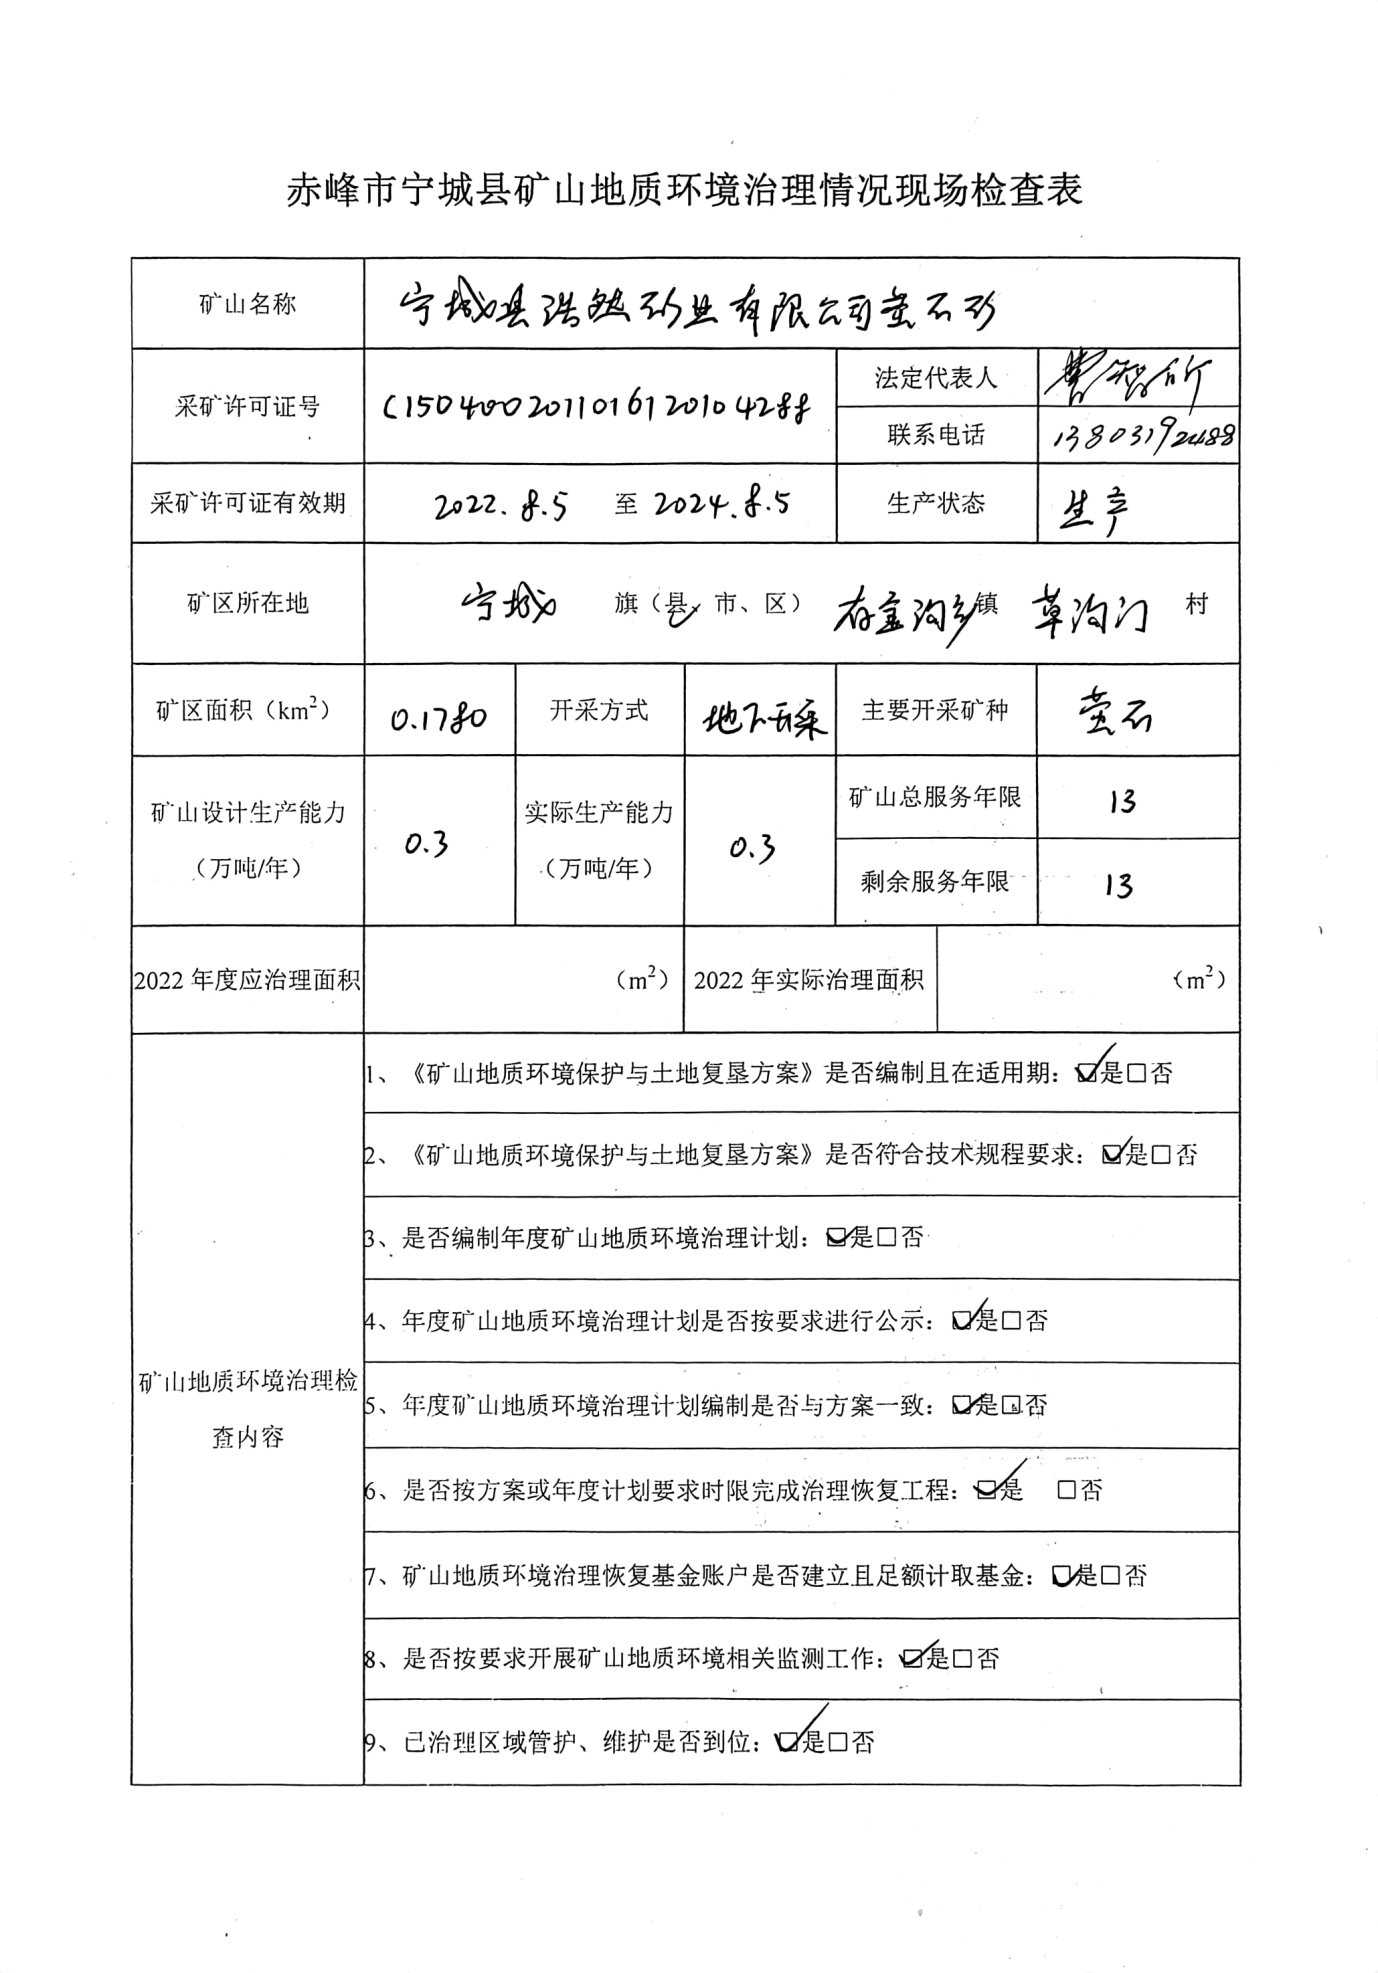 赤峰市宁城县矿山地质环境治理情况现场检查表
矿山名称 宁城县浩然矿业有限公司萤石矿
采矿许可证号 C1504002011016120104288 法定代表人
联系电话 13803192488
采矿许可证有效期 2022.8.5 至 2024.8.5 生产状态 生产
矿区所在地 宁城 旗（县、市、区） 存金沟乡镇 草沟门 村
矿区面积（km²） 0.1780 开采方式 地下开采 主要开采矿种 萤石
矿山设计生产能力（万吨/年） 0.3 实际生产能力（万吨/年） 0.3 矿山总服务年限 13
剩余服务年限 13
2022 年度应治理面积 （m²） 2022 年实际治理面积 （m²）
矿山地质环境治理检查内容
1、《矿山地质环境保护与土地复垦方案》是否编制且在适用期：☑是□否
2、《矿山地质环境保护与土地复垦方案》是否符合技术规程要求：☑是□否
3、是否编制年度矿山地质环境治理计划：☑是□否
4、年度矿山地质环境治理计划是否按要求进行公示：☑是□否
5、年度矿山地质环境治理计划编制是否与方案一致：☑是□否
6、是否按方案或年度计划要求时限完成治理恢复工程：☑是 □否
7、矿山地质环境治理恢复基金账户是否建立且足额计取基金：☑是□否
8、是否按要求开展矿山地质环境相关监测工作：☑是□否
9、已治理区域管护、维护是否到位：☑是□否